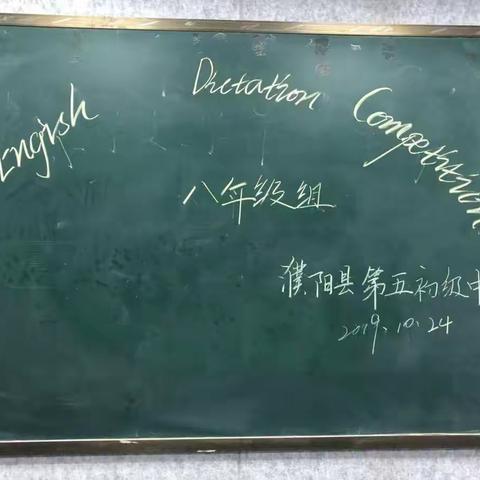 English Dictation Competition
八年级组
濮阳县第五初级中
2019.10.24